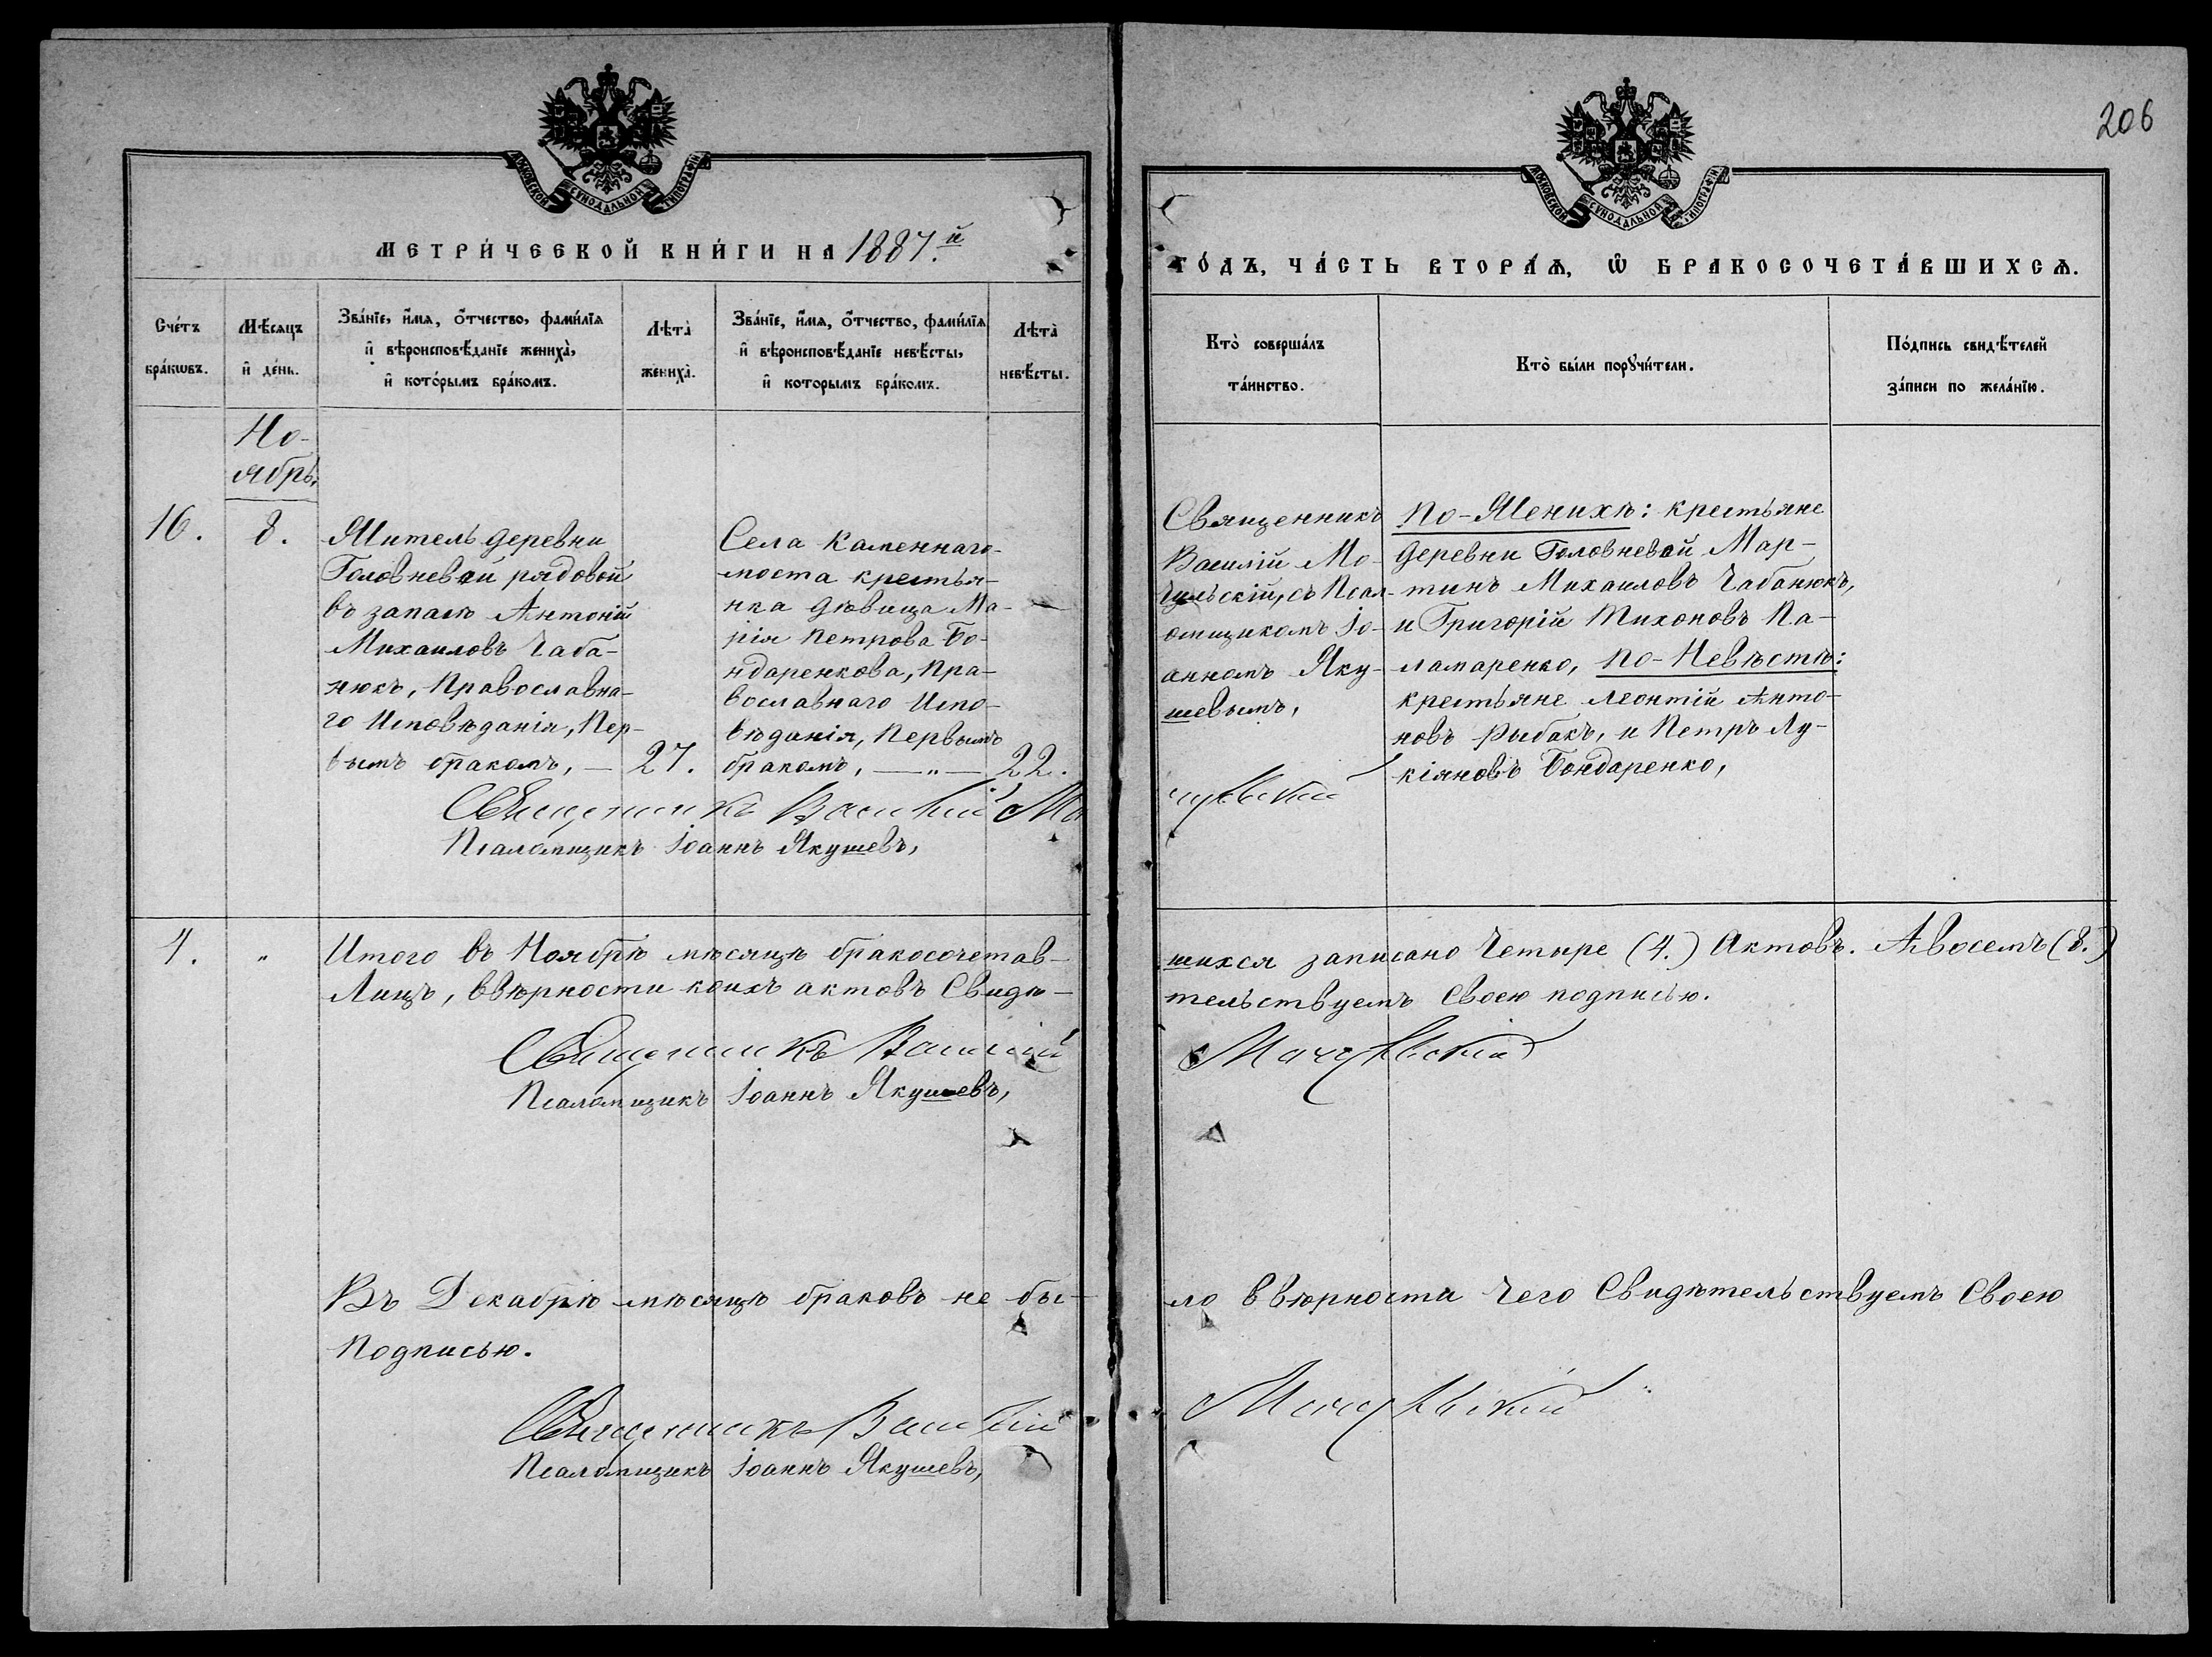 206
МОСКОВСКОЙ СѴНОДАЛЬНОЙ ТИПОГРАФІИ
МОСКОВСКОЙ СѴНОДАЛЬНОЙ ТИПОГРАФІИ
МЕТРИ́ЧЕСКОЙ КНИ́ГИ НА 1887.й
ГО́ДЪ, ЧА́СТЬ ВТОРА́Ѧ, Ѡ҆ БРАКОСОЧЕТА́ВШИХСѦ.
Сче́тъ бра́кѡвъ.
Мѣ́сѧцъ и҆ де́нь.
Зва́нїе, и҆́мѧ, ѻ҆́тчество, фами́лїѧ и҆ вѣроисповѣ́данїе жениха̀, и҆ кото́рымъ бра́комъ.
Лѣта̀ жениха̀.
Зва́нїе, и҆́мѧ, ѻ҆́тчество, фами́лїѧ и҆ вѣроисповѣ́данїе невѣ́сты, и҆ которымъ бра́комъ.
Лѣта̀ невѣ́сты.
Кто̀ соверша́лъ та́инство.
Кто̀ бы́ли порꙋчи́тели.
По́дпись свидѣ́телей за́писи по жела́нїю.
Но-
ябрь.
16.
8.
Житель деревни
Головневой рядовой
въ запасѣ Антоній
Михаиловъ Чаба-
нюкъ, Православна-
го Исповѣданія, Пер-
вымъ бракомъ, — 27.
Села Каменнаго-
моста крестья-
нка дѣвица Ма-
рія Петрова Бо-
ндаренкова, Пра-
вославнаго Испо-
вѣданія, Первымъ
бракомъ, —„— 22.
Священникъ
Василій Мо-
чульскій, съ Псал-
омщикомъ Іо-
анномъ Яку-
шевымъ,
По-Женихѣ: крестьяне
деревни Головневой Мар-
тинъ Михаиловъ Чабанюкъ,
и Григорій Тихоновъ Па-
ламаренко, По-Невѣстѣ:
крестьяне Леонтій Анто-
новъ Рыбакъ, и Петръ Лу-
кіяновъ Бондаренко,
Священникъ Василій Мо
чульскій
Псаломщикъ Іоаннъ Якушевъ,
4. „ Итого въ Ноябрѣ мѣсяцѣ бракосочетав-
шихся записано Четыре (4.) Актовъ. А восемъ (8.)
Лицъ, ввѣрности коихъ актовъ Свидѣ-
тельствуемъ Своею подписью.
Священникъ Василій
Мочульскій
Псаломщикъ Іоаннъ Якушевъ,
Въ Декабрѣ мѣсяцѣ браковъ не бы-
ло ввѣрности Чего Свидѣтельствуемъ Своею
Подписью.
Священникъ Василій
Мочульскій
Псаломщикъ Іоаннъ Якушевъ,